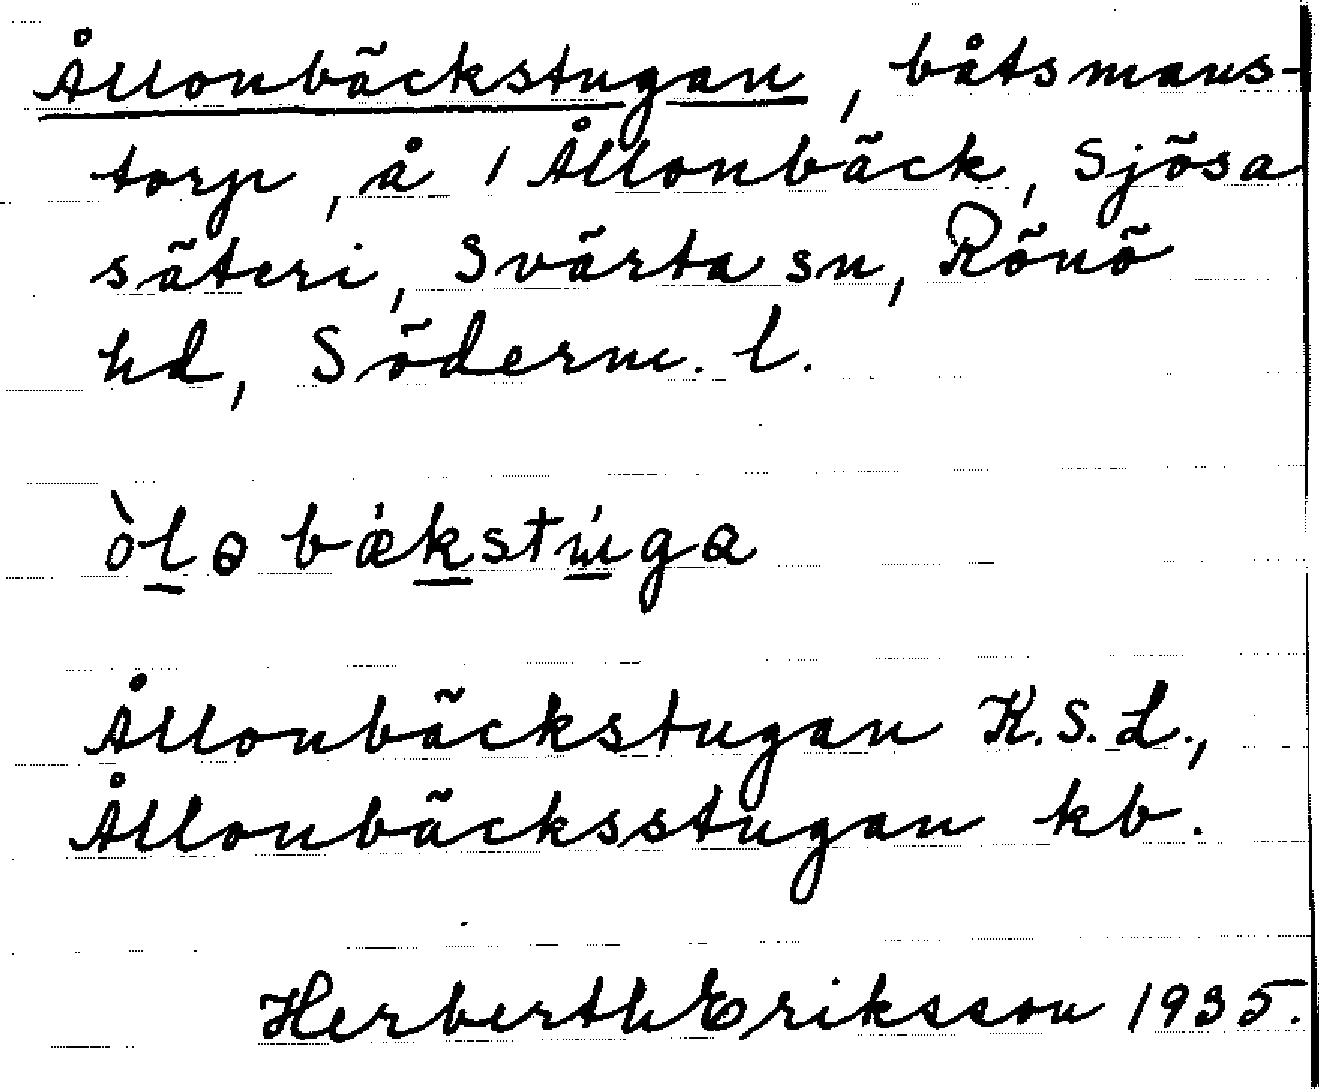 Ållonbäckstugan, båtsmans-
torp, å 1 Ållonbäck, Sjösa
säteri, Svärta sn, Rönö
hd, Söderm. l.
òlǝbækstúga
Ållonbäckstugan K.S.L.,
Ållonbäcksstugan kb.
Herberth Eriksson 1935.